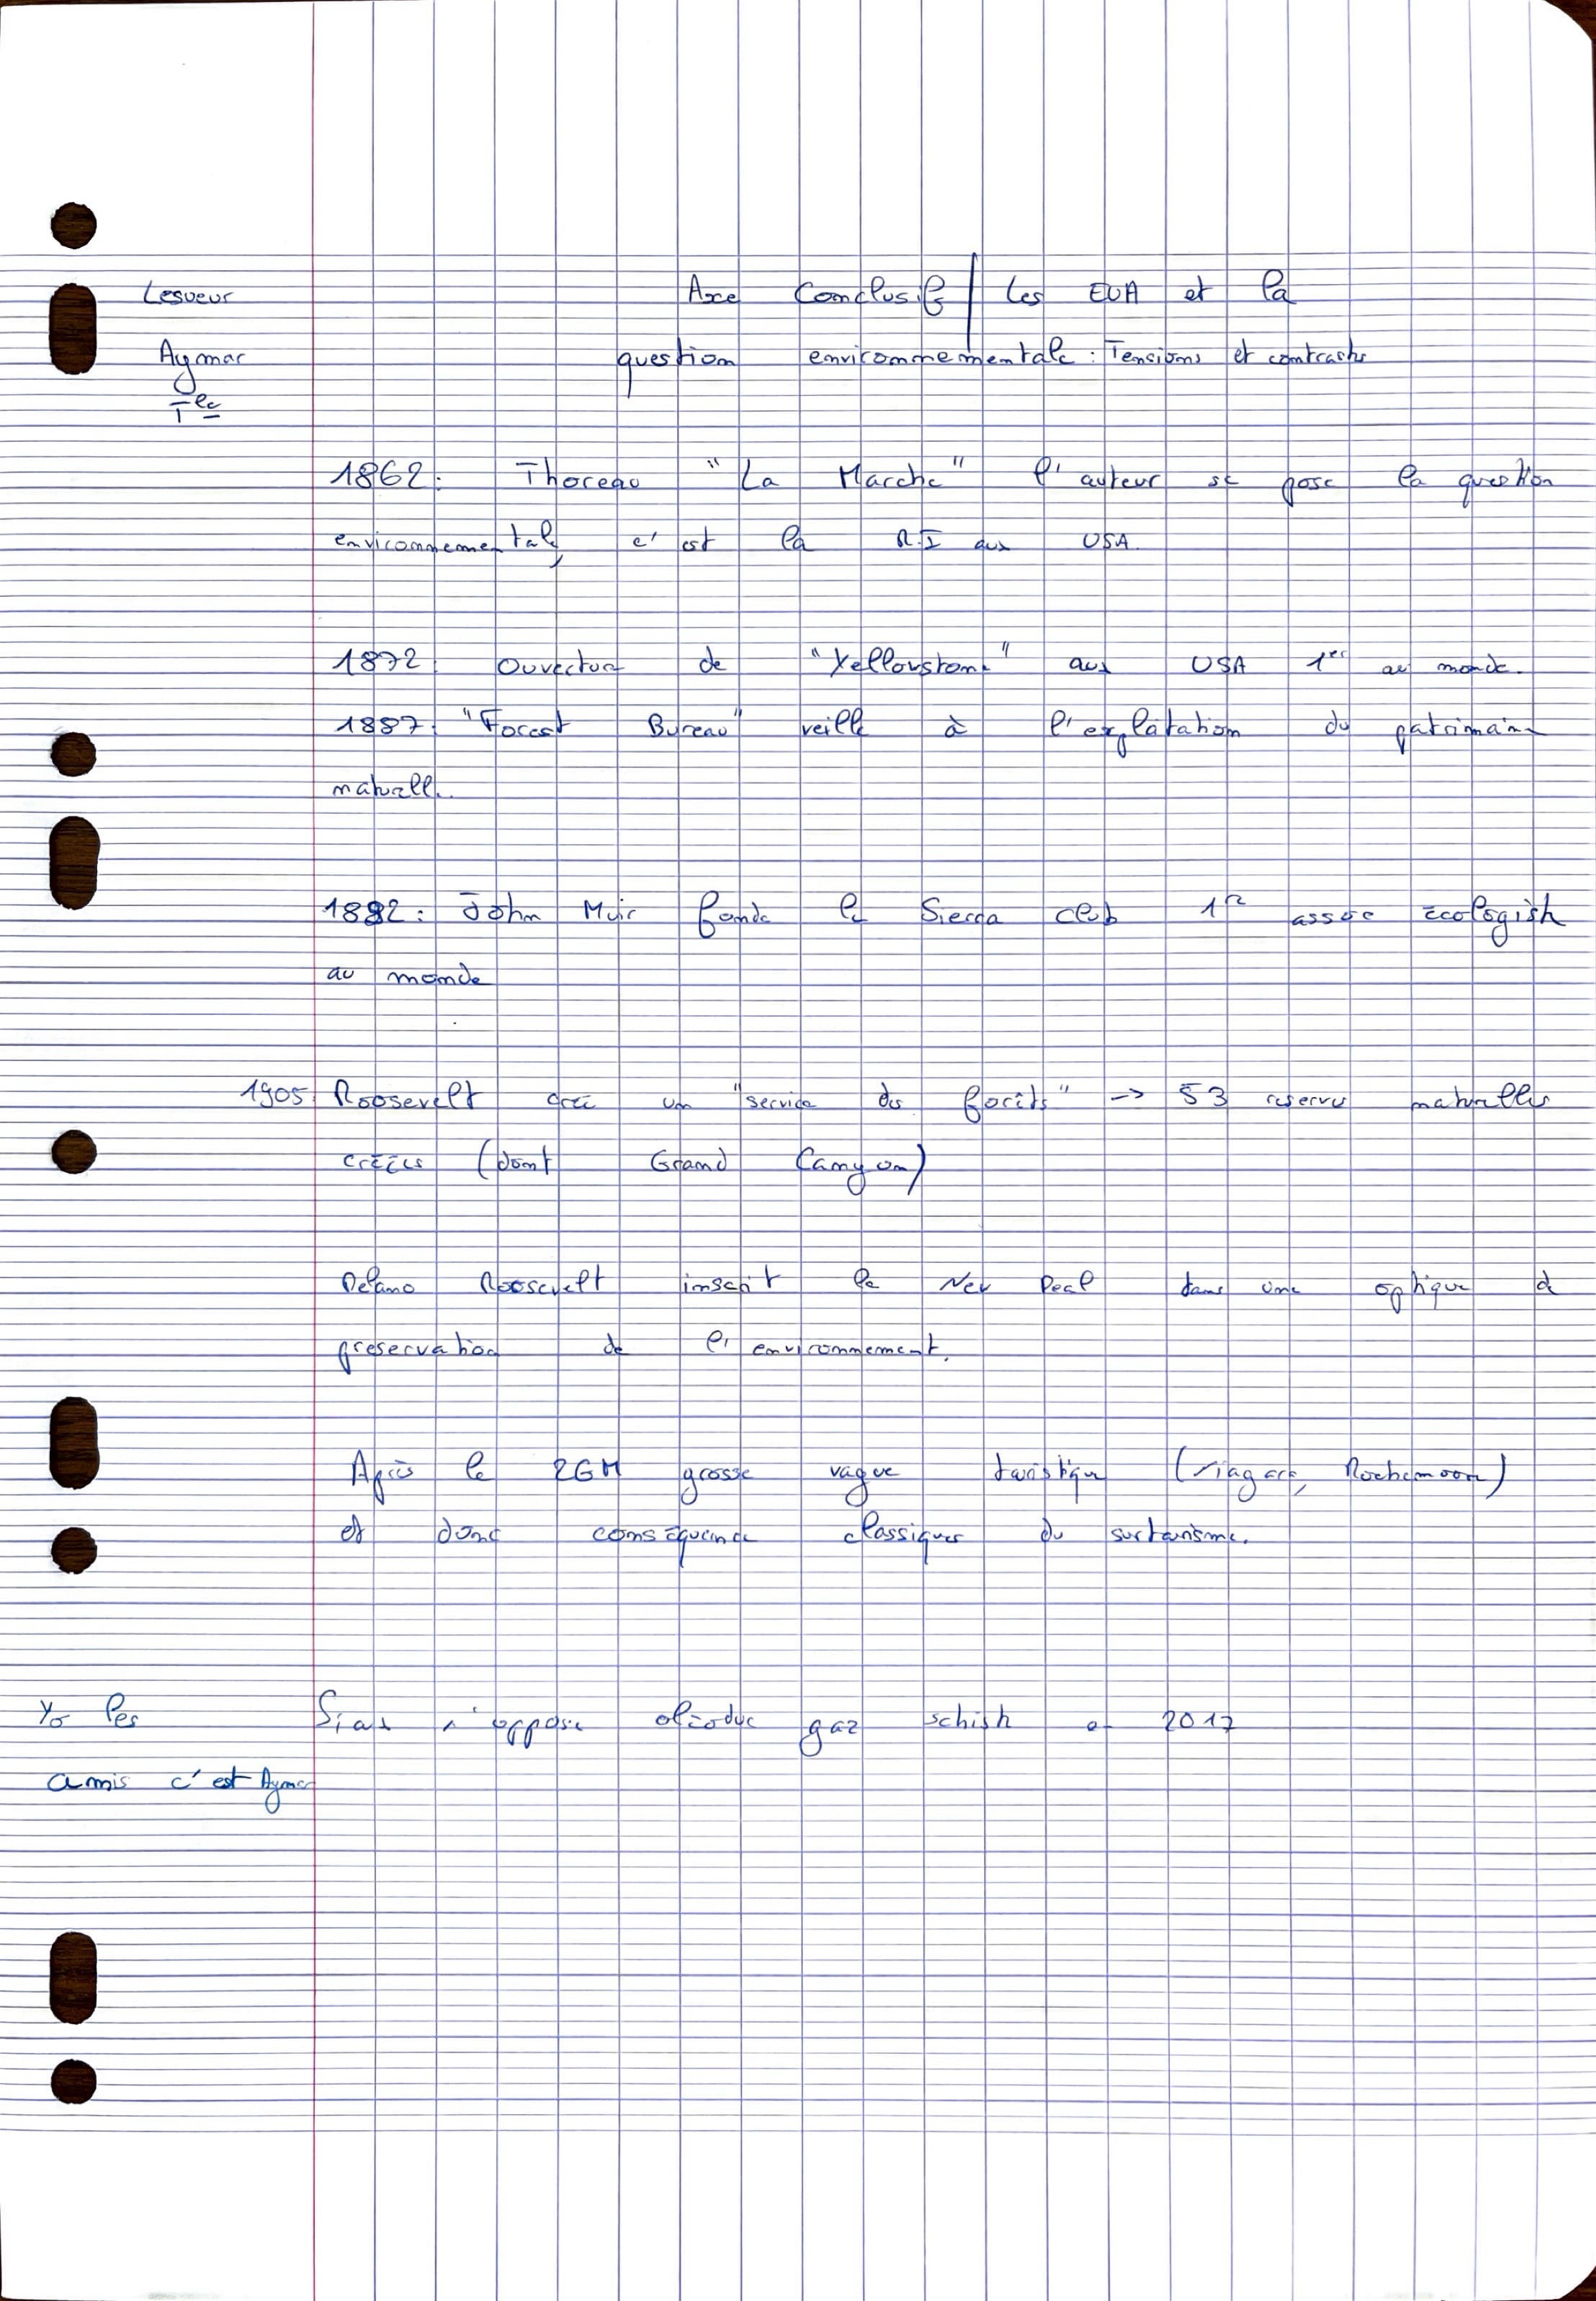 Lesueur
Aymar
Tle
Axe Conclusif / Les EUA et la
question environnementale : Tensions et contrastes
1862 : Thoreau "La Marche" l'auteur se pose la question
environnementale, c'est la R.I aux USA.
1872 Ouverture de "Yellowstone" aux USA 1er au monde.
1887 : "Forest Bureau" veille à l'exploitation du patrimoine
naturelle.
1892 : John Muir fonde le Sierra Club 1re assoc écologiste
au monde
1905 Roosevelt crée un "service des forêts" -> 53 reserves naturelles
créées (dont Grand Canyon)
Delano Roosevelt inscrit le New Deal dans une optique de
preservation de l'environnement.
Après la 2GM grosse vague touristique (Niagara, )
et donc conséquence classiques du surtourisme.
Yo les
amis c'est Aymar
s'oppose oléoduc gaz schiste 2017